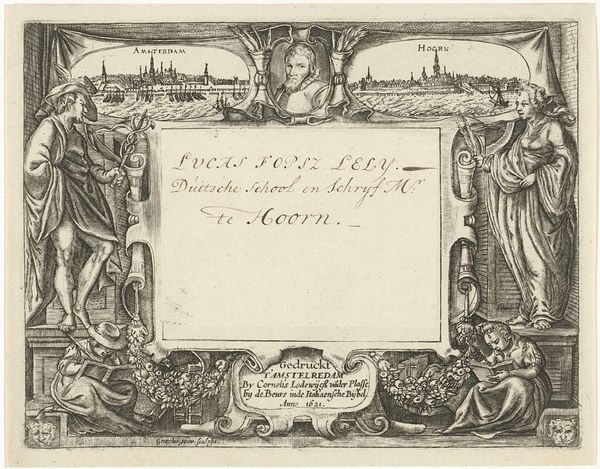 AMSTERDAM
HOORN
LVCAS FOPSZ LELY.
Duitsche School en Schryf Mr
te Hoorn.
Gedruckt
T'AMSTELREDAM
By Cornelis Lodewijcsz vāder Plasse
bij de Beurs inde Italiaensche Bijbel
Anno 1621.
sculpsit